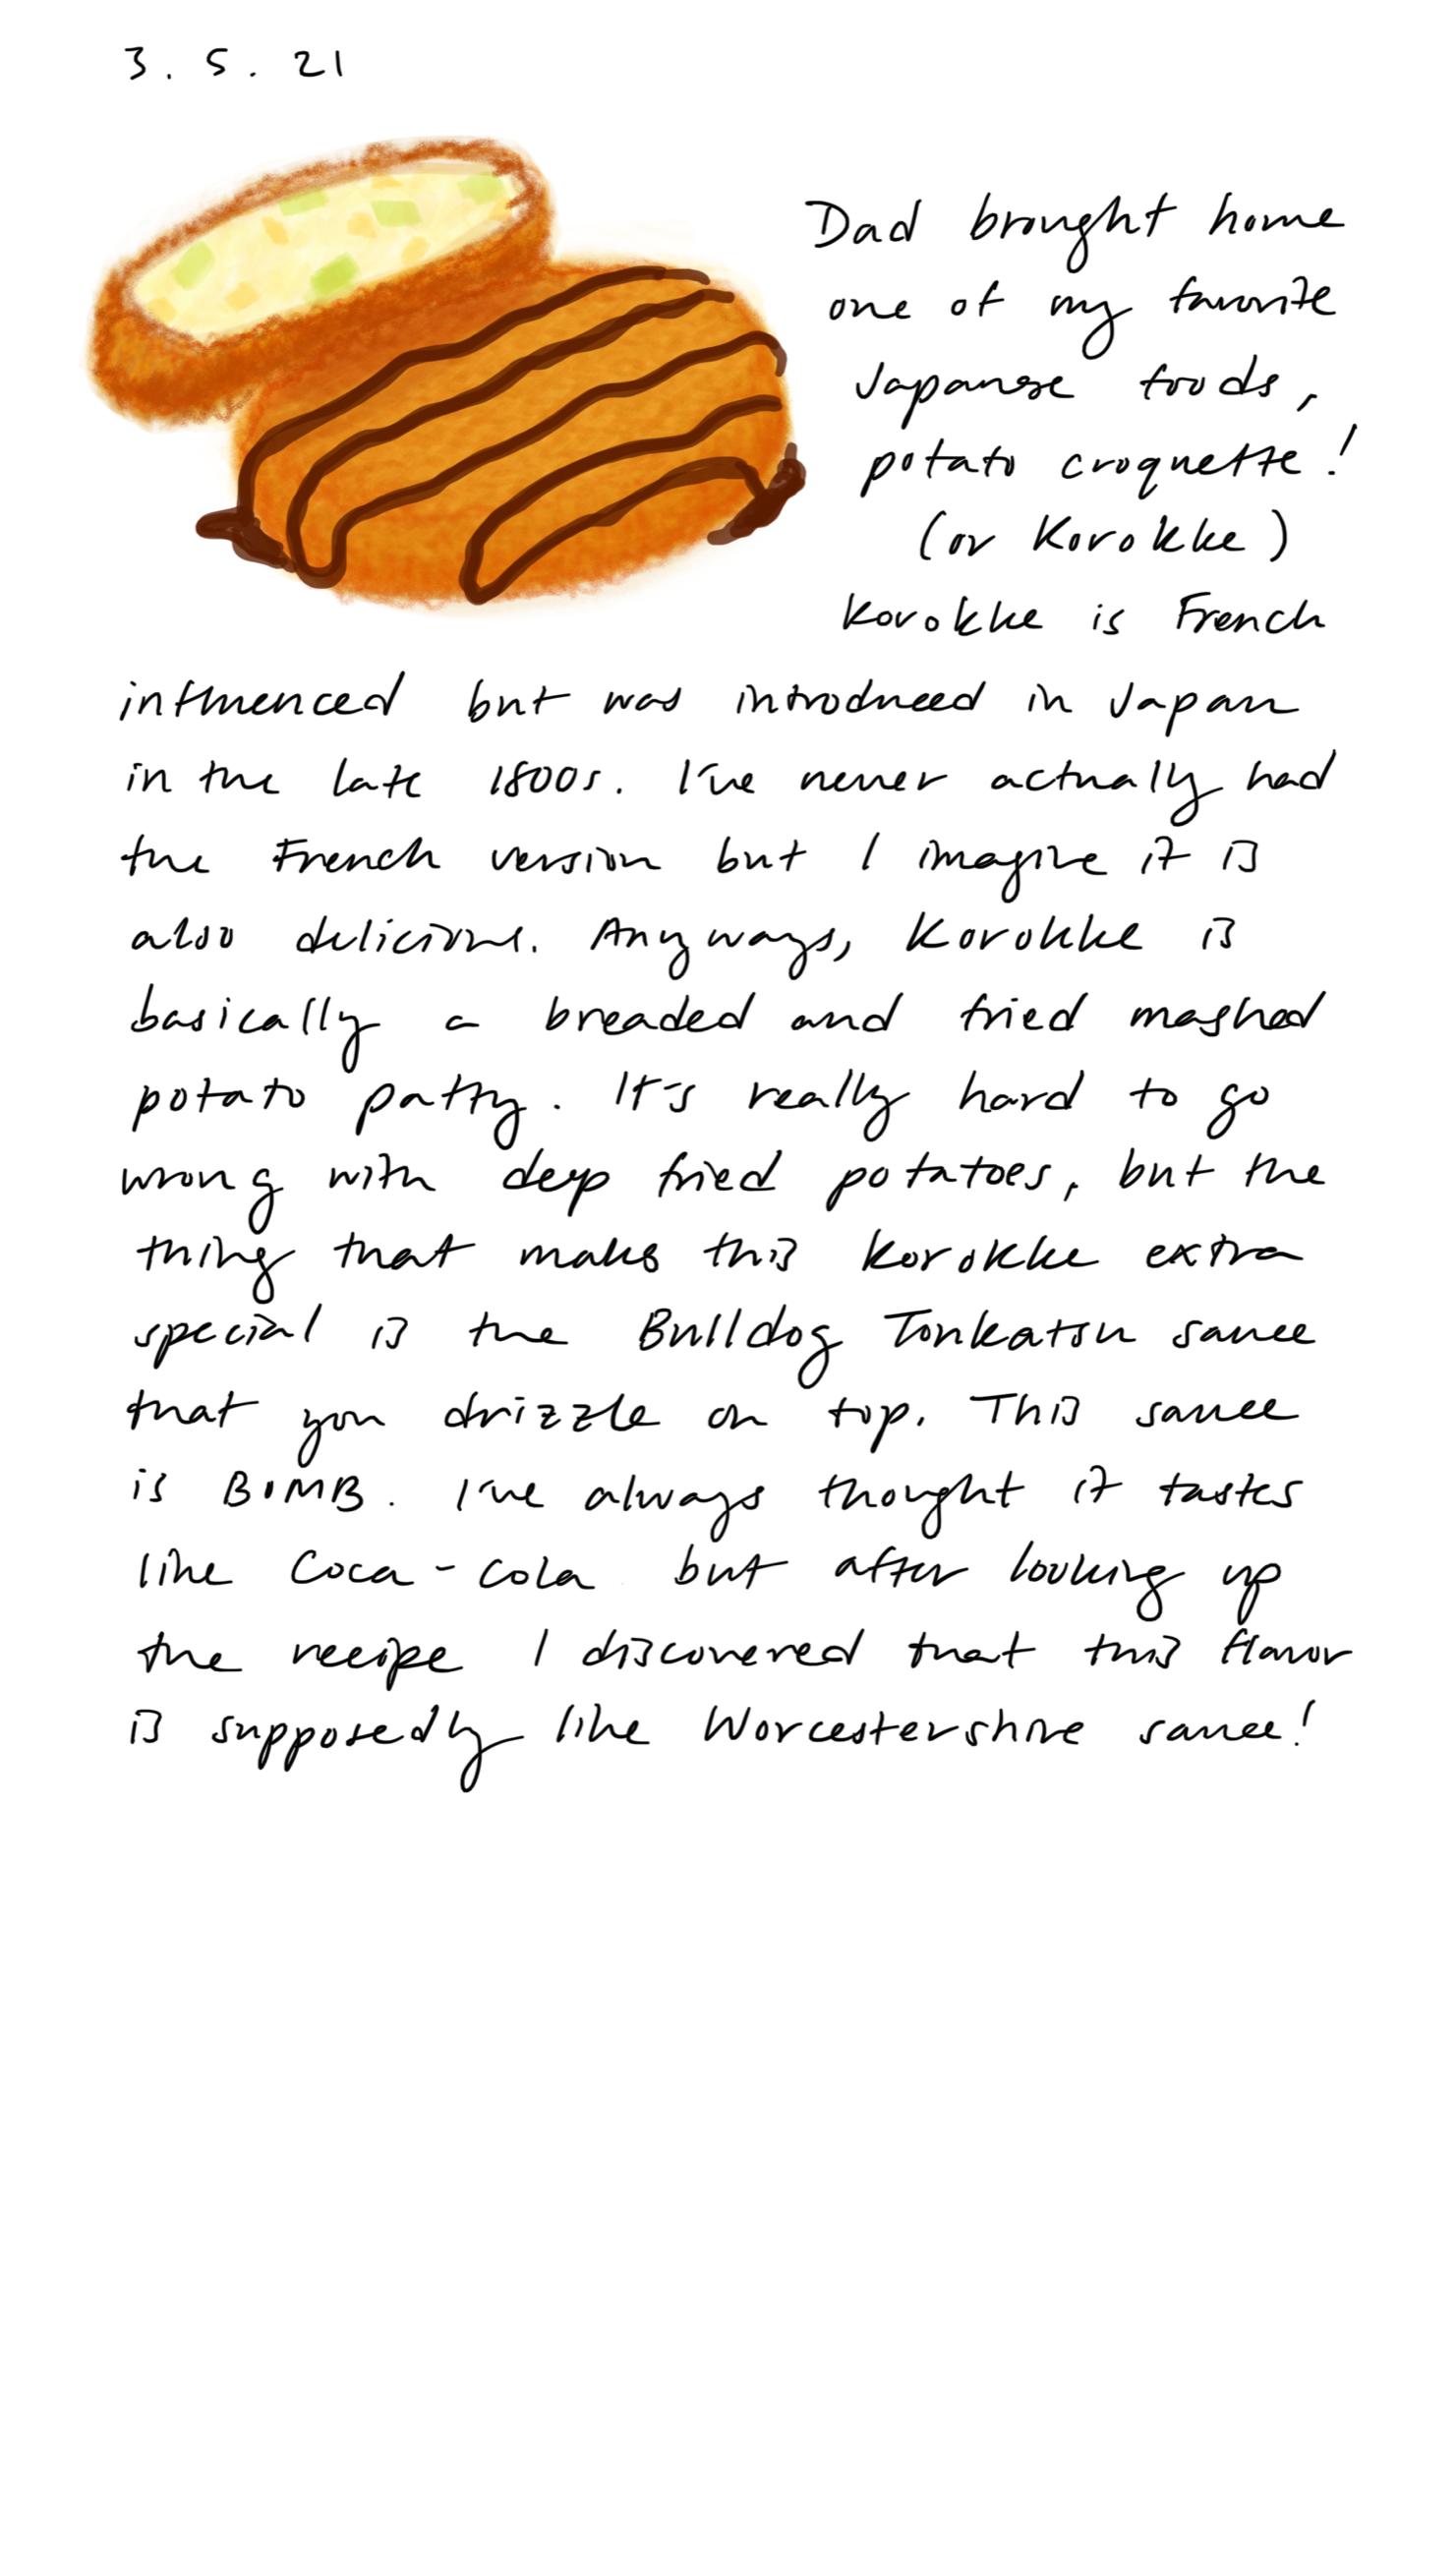 3.5.21
Dad brought home
one of my favorite
Japanese foods,
potato croquette!
(or Korokke)
Korokke is French
influenced but was introduced in Japan
in the late 1800s. I've never actually had
the French version but I imagine it is
also delicious. Anyways, Korokke is
basically a breaded and fried mashed
potato patty. It's really hard to go
wrong with deep fried potatoes, but the
thing that makes this korokke extra
special is the Bulldog Tonkatsu sauce
that you drizzle on top. This sauce
is BOMB. I've always thought it tastes
like Coca-Cola but after looking up
the recipe I discovered that this flavor
is supposedly like Worcestershire sauce!